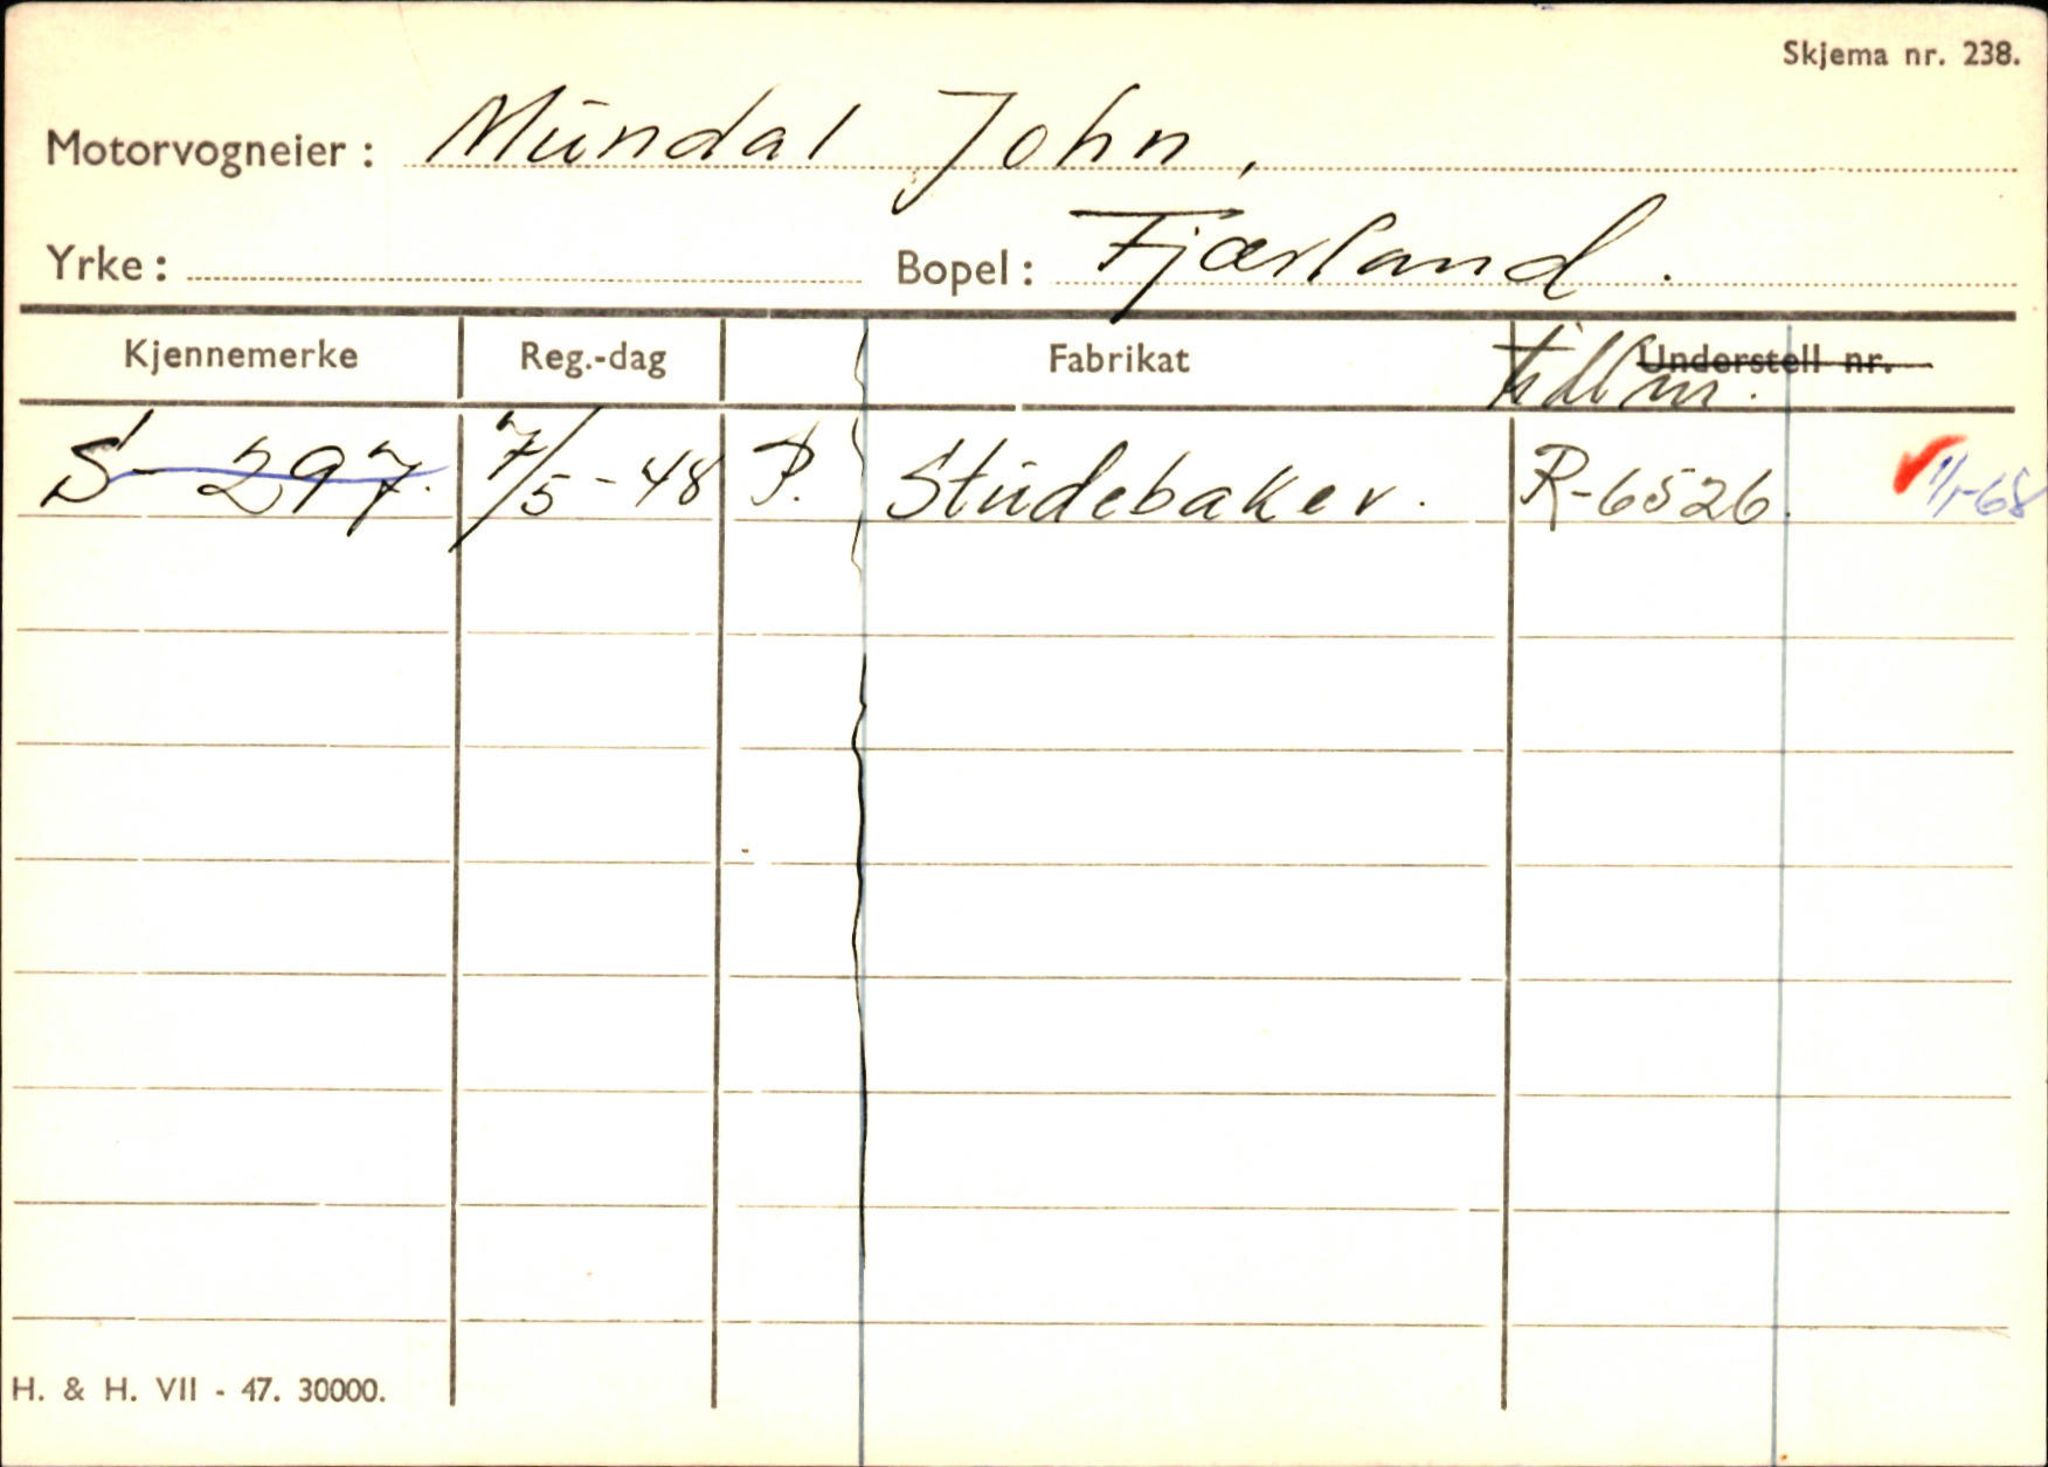 Skjema nr. 238.
Motorvogneier: Mundal John,
Yrke: Bopel: Fjærland.
Kjennemerke Reg.-dag Fabrikat Understell nr.
S-297. 7/5-48 P. Studebaker. R-6526. 1/1-68
H. & H. VII - 47. 30000.